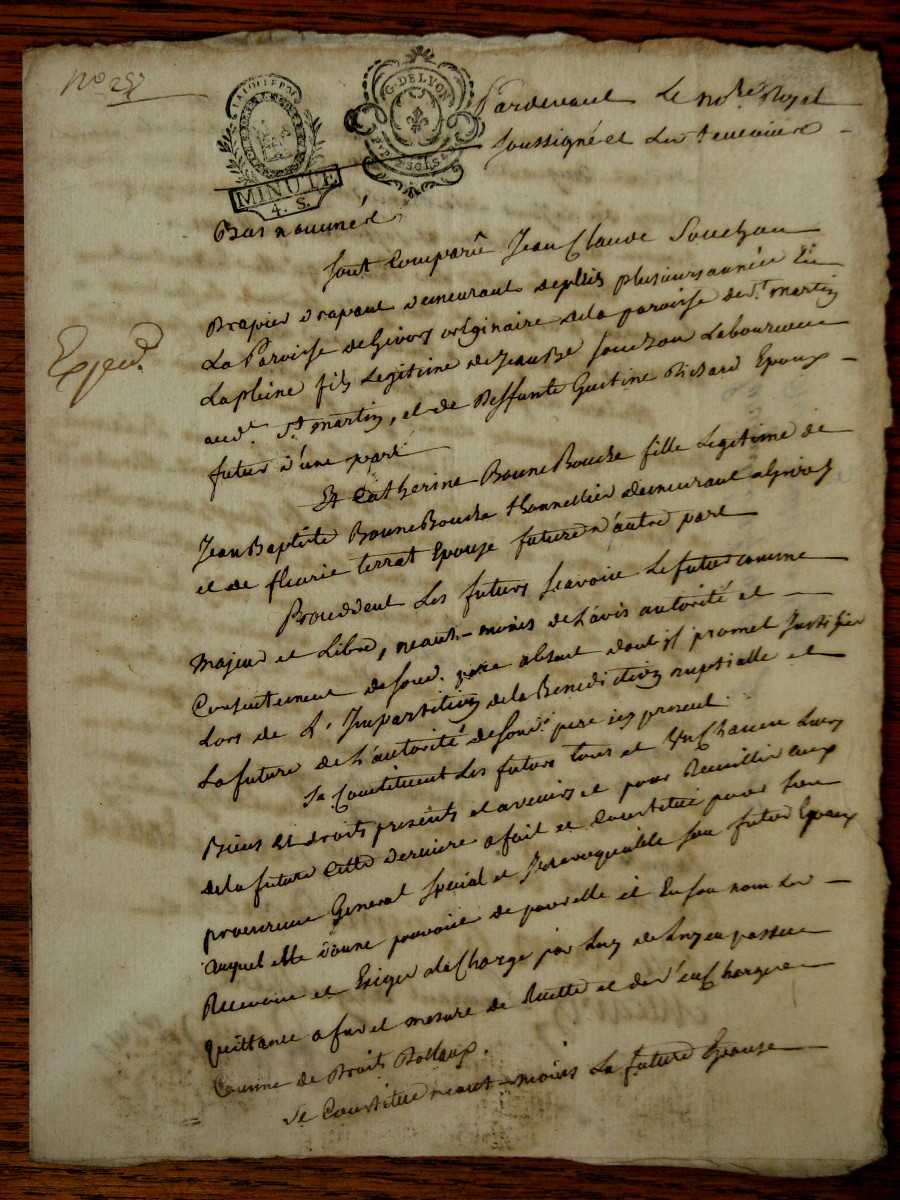 no 257
G. DE LYON
MINUTE
4. S.
Pardevant Le nore Royal
soussigné et Les temoins
Bas nommés
sont Comparû Jean Claude Souchon
Drapier drapant demeurant depuis plusieurs année En
La Paroisse de Givors originaire de la paroisse de st martin
Laplaine fils Legitime de Jean Bte Souchon Laboureur
aud. st martin, et de Deffunte Guitine Richard Epoux
futur d'une part
Et Catherine Bonne Bouche fille Legitime de
Jean Baptiste Bonne Bouche thonnellier demeurant a Givors
et de fleurie terrat Epouse future d'autre part
Proceddent Les futurs scavoir Le futur comme
majeur et Libre, neant-moins de L'avis autorité et
Consentement de soud. pere absent dont il promet Justifier
Lors de L'Impartition de la Benediction nuptialle et
La future de L'autorité de soud. pere icy present
Se Constituent Les futurs tous et Un Chacun Leurs
Biens Et droits presents et avenirs et pour Recuillir ceux
de la future cette derniere a fait et constitué pour son
procureur General special et Irrevoquable son futur Epoux
auquel elle donne pouvoir de pour elle et En son nom Les
Recevoir et Exiger a la Charge par Luy de Luy en passer
quittance a fur et mesure de Recette et de s'en Charger
Comme de Droits Dotteaux.
Se Constitue neant-moins La future Epouse
Exped.